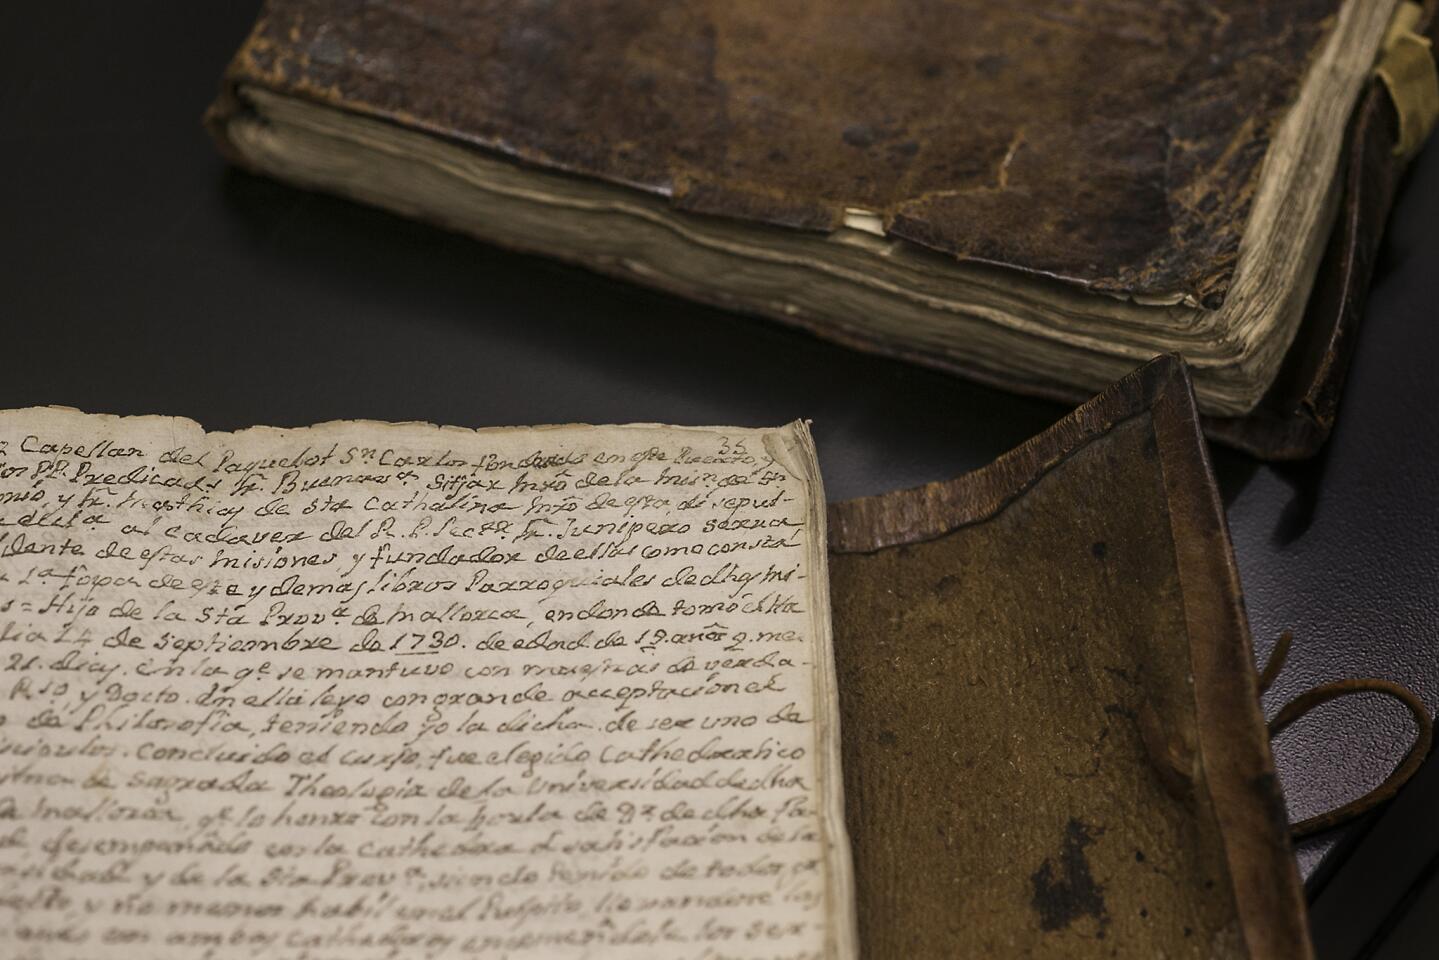 35
Capellan del Paquebot Sn. Carlos fondeado en este Puerto, y
PP. Predicads Fr. Buenavra. Sitjar Mntro de la Misn de Sn
y Fr. de Sta Cathalina Mntro de esta, di sepul-
al cadaver del R. P. Lectr. Fr. Junipero Serra
de estas Misiones, y fundador de ellas como consta
1a foja de este y demas libros Parroquiales de dhas Mi-
s = Hijo de la Sta Prova de Mallorca, en donde tomó el Ha
dia 14 de Septiembre de 1730. de edad de 16 años 9. me-
21. dias. En la qe. se mantuvo con muestras de verda-
y Docto. En ella leyo con grande acceptacion el
de Philosofia, teniendo yo la dicha de ser uno de
Concluido el curso, fue elegido Cathedratico
de Sagrada Theologia de la Universidad de dha
de Mallorca, qe. lo honro con la borla de Dr. de dha Fa-
desempeñado con la Cathedra á satisfaccion de la
y de la Sta Prova. siendo tenido de todos
y no menos habil en el Pulpito, llevandose los
con ambos